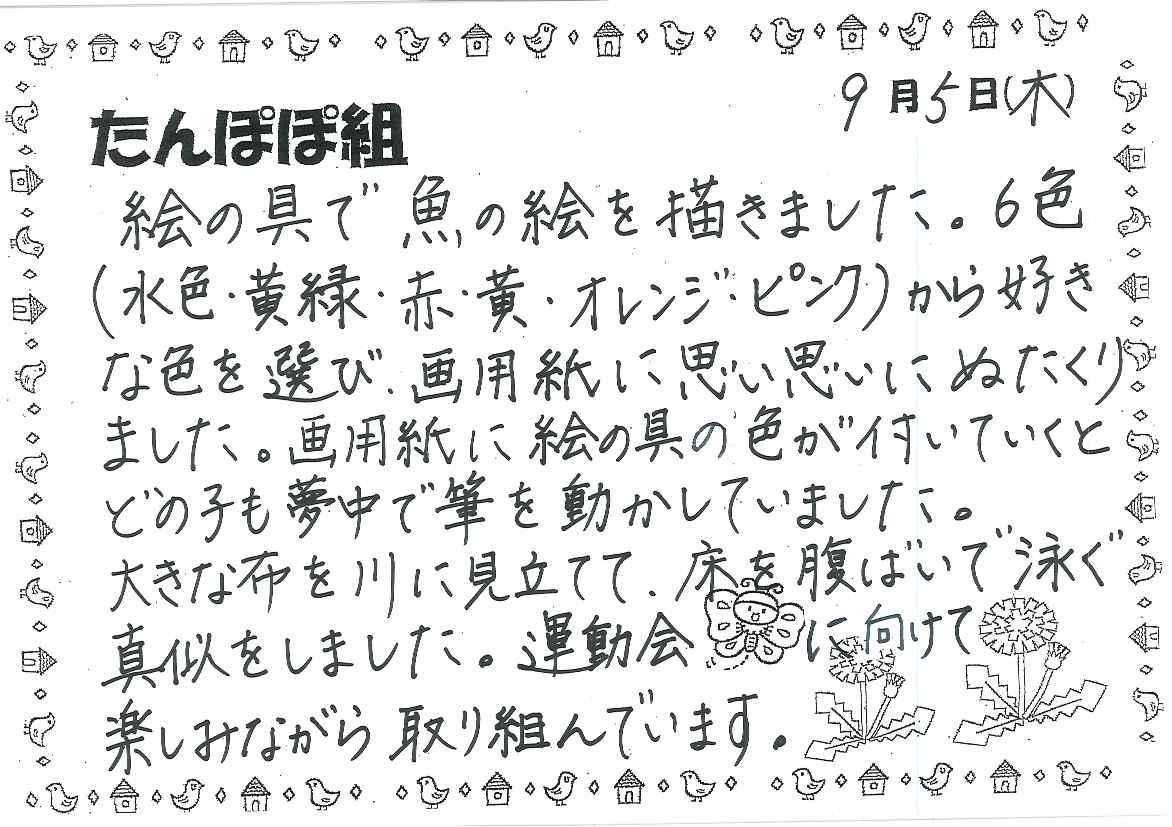 9月5日(木)
たんぽぽ組
絵の具で魚の絵を描きました。6色
(水色・黄緑・赤・黄・オレンジ・ピンク)から好き
な色を選び、画用紙に思い思いにぬたくり
ました。画用紙に絵の具の色が付いていくと
どの子も夢中で筆を動かしていました。
大きな布を川に見立てて、床を腹ばいで泳ぐ
真似をしました。運動会に向けて
楽しみながら取り組んでいます。